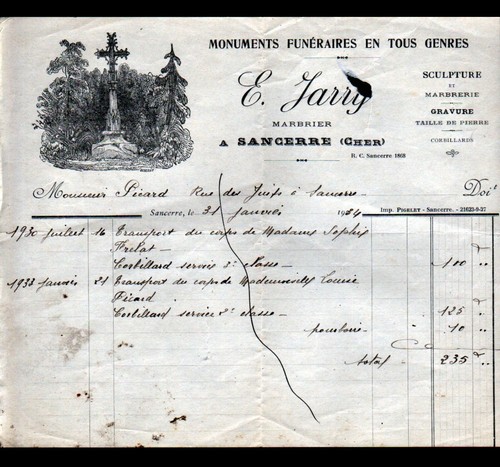 MONUMENTS FUNÉRAIRES EN TOUS GENRES
E. Jarry
MARBRIER
A SANCERRE (CHER)
R. C. Sancerre 1868
SCULPTURE
ET
MARBRERIE
GRAVURE
TAILLE DE PIERRE
CORBILLARDS
Monsieur Picard Rue des Juifs à Sancerre Doit
Sancerre, le 31 janvier 1934
Imp. PIGELET - Sancerre. - 21623-9-27
1930 juillet 16 Transport du corps de Madame Sophie
Corbillard service 2e classe 100 "
1933 janvier 21 Transport du corps de Mademoiselle Louise
Picard
Corbillard service 2e classe 125 "
pourboire 10 "
total 235 "